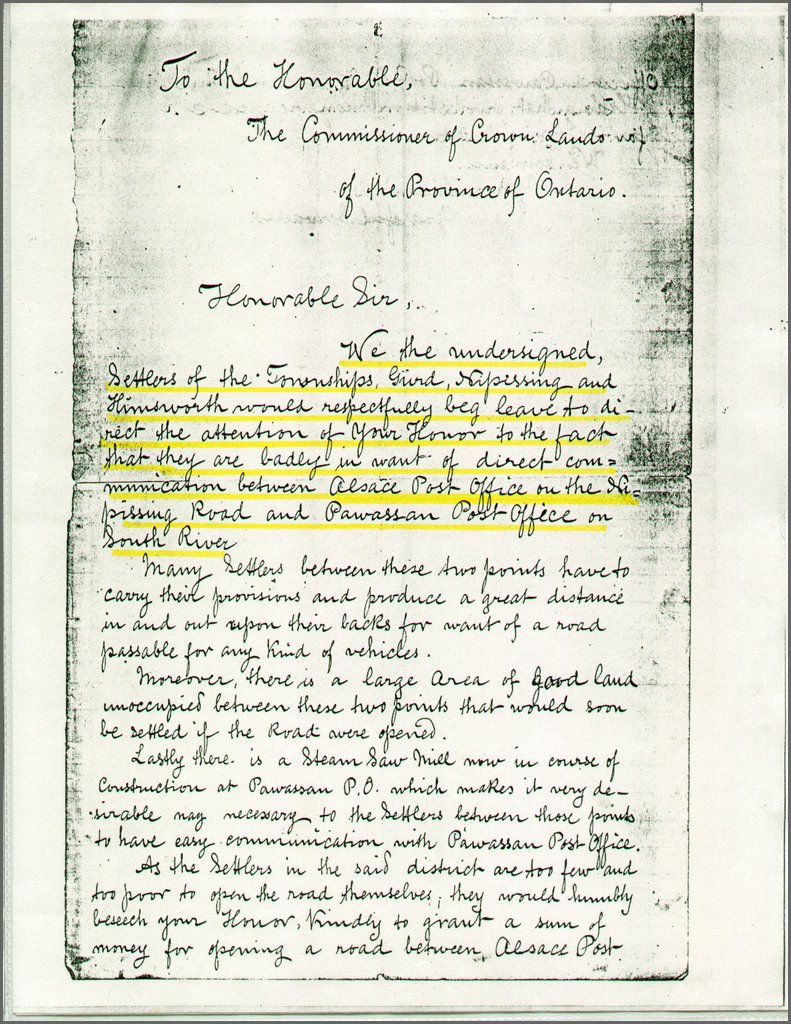 To the Honorable,
The Commissioner of Crown Lands
of the Province of Ontario.
Honorable Sir,
We the undersigned,
Settlers of the Townships, Gurd, Nipissing and
Himsworth would respectfully beg leave to di-
rect the attention of Your Honor to the fact
that they are badly in want of direct com=
munication between Alsace Post Office on the Ni-
pissing Road and Pawassan Post Office on
South River
Many Settlers between these two points have to
carry their provisions and produce a great distance
in and out upon their backs for want of a road
passable for any kind of vehicles.
Moreover, there is a large area of good land
unoccupied between these two points that would soon
be settled if the Road were opened.
Lastly there is a Steam Saw Mill now in course of
Construction at Pawassan P.O. which makes it very de-
sirable nay necessary to the Settlers between those points
to have easy communication with Pawassan Post Office.
As the Settlers in the said district are too few and
too poor to open the road themselves, they would humbly
beseech your Honor, Kindly to grant a sum of
money for opening a road between Alsace Post